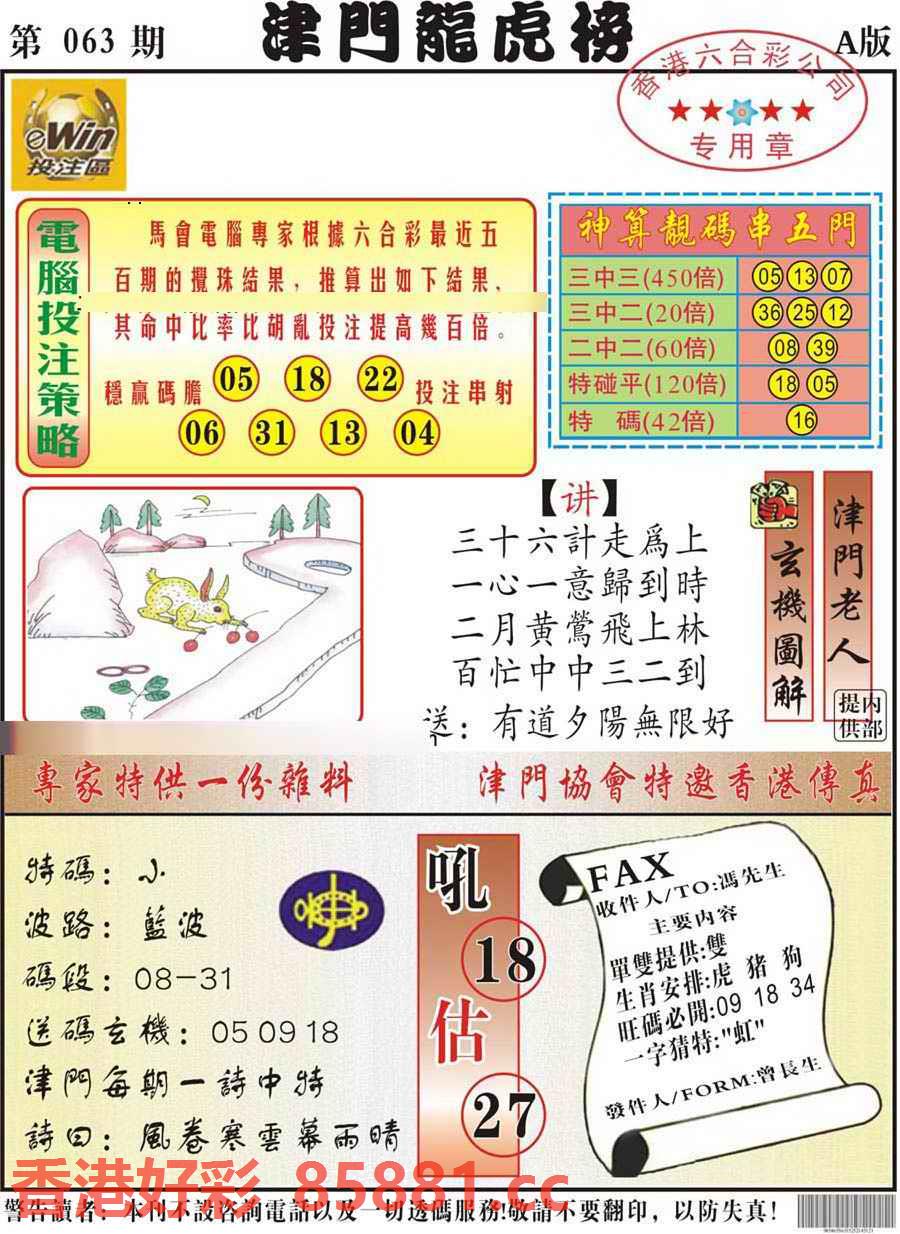 第 063 期
津門龍虎榜
A版
香港六合彩公司
专用章
eWin
投注區
電腦投注策略
馬會電腦專家根據六合彩最近五
百期的攪珠結果，推算出如下結果，
其命中比率比胡亂投注提高幾百倍。
穩贏碼膽 05 18 22 投注串射
06 31 13 04
神算靚碼串五門
三中三(450倍) 05 13 07
三中二(20倍) 36 25 12
二中二(60倍) 08 39
特碰平(120倍) 18 05
特 碼(42倍) 16
【讲】
三十六計走爲上
一心一意歸到時
二月黄鶯飛上林
百忙中中三二到
送：有道夕陽無限好
玄機圖解
津門老人
内部提供
專家特供一份雜料
津門協會特邀香港傳真
特碼：小
波路：藍波
碼段：08-31
送碼玄機：05 09 18
津門每期一詩中特
詩曰：風卷寒雲幕雨晴
吼
18
估
27
FAX
收件人/TO:馮先生
主要内容
單雙提供:雙
生肖安排:虎 猪 狗
旺碼必開:09 18 34
一字猜特:"虹"
發件人/FORM:曾長生
香港好彩 85881.cc
警告讀者：本刊不設咨詢電話以及一切透碼服務!敬請不要翻印，以防失真!